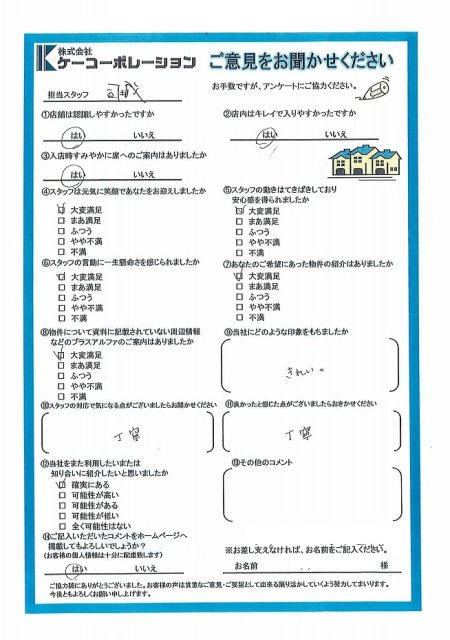 株式会社
ケーコーポレーション
ご意見をお聞かせください
担当スタッフ
お手数ですが、アンケートにご協力ください。
①店舗は認識しやすかったですか
はい いいえ
②店内はキレイで入りやすかったですか
はい いいえ
③入店時すみやかに席へのご案内はありましたか
はい いいえ
④スタッフは元気に笑顔であなたをお迎えしましたか
大変満足
まあ満足
ふつう
やや不満
不満
⑤スタッフの動きはてきぱきしており
安心感を得られましたか
大変満足
まあ満足
ふつう
やや不満
不満
⑥スタッフの言動に一生懸命さを感じられましたか
大変満足
まあ満足
ふつう
やや不満
不満
⑦あなたのご希望にあった物件の紹介はありましたか
大変満足
まあ満足
ふつう
やや不満
不満
⑧物件について資料に記載されていない周辺情報
などのプラスアルファのご案内はありましたか
大変満足
まあ満足
ふつう
やや不満
不満
⑨当社にどのような印象をもちましたか
きれい。
⑩スタッフの対応で気になる点がございましたらお聞かせください
丁寧
⑪良かったと感じた点がございましたらおきかせください
丁寧
⑫当社をまた利用したいまたは
知り合いに紹介したいと思いましたか
確実にある
可能性が高い
可能性がある
可能性が低い
全く可能性はない
⑬その他のコメント
⑭ご記入いただいたコメントをホームページへ
掲載してもよろしいでしょうか？
(お客様の個人情報は十分に配慮致します)
はい いいえ
※お差し支えなければ、お名前をご記入ください。
お名前 様
ご協力誠にありがとうございました。お客様の声は貴重なご意見・ご要望として出来る限り活かしていくよう努力してまいります。
今後ともよろしくお願い申し上げます。